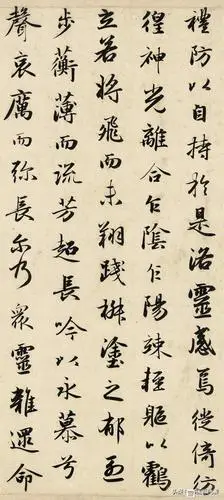 禮防以自持於是洛靈感焉徙倚彷
徨神光離合乍陰乍陽竦輕軀以鶴
立若将飛而未翔踐椒塗之郁烈
步蘅薄而流芳超長吟以永慕兮
聲哀厲而弥長尔乃衆靈雜遝命